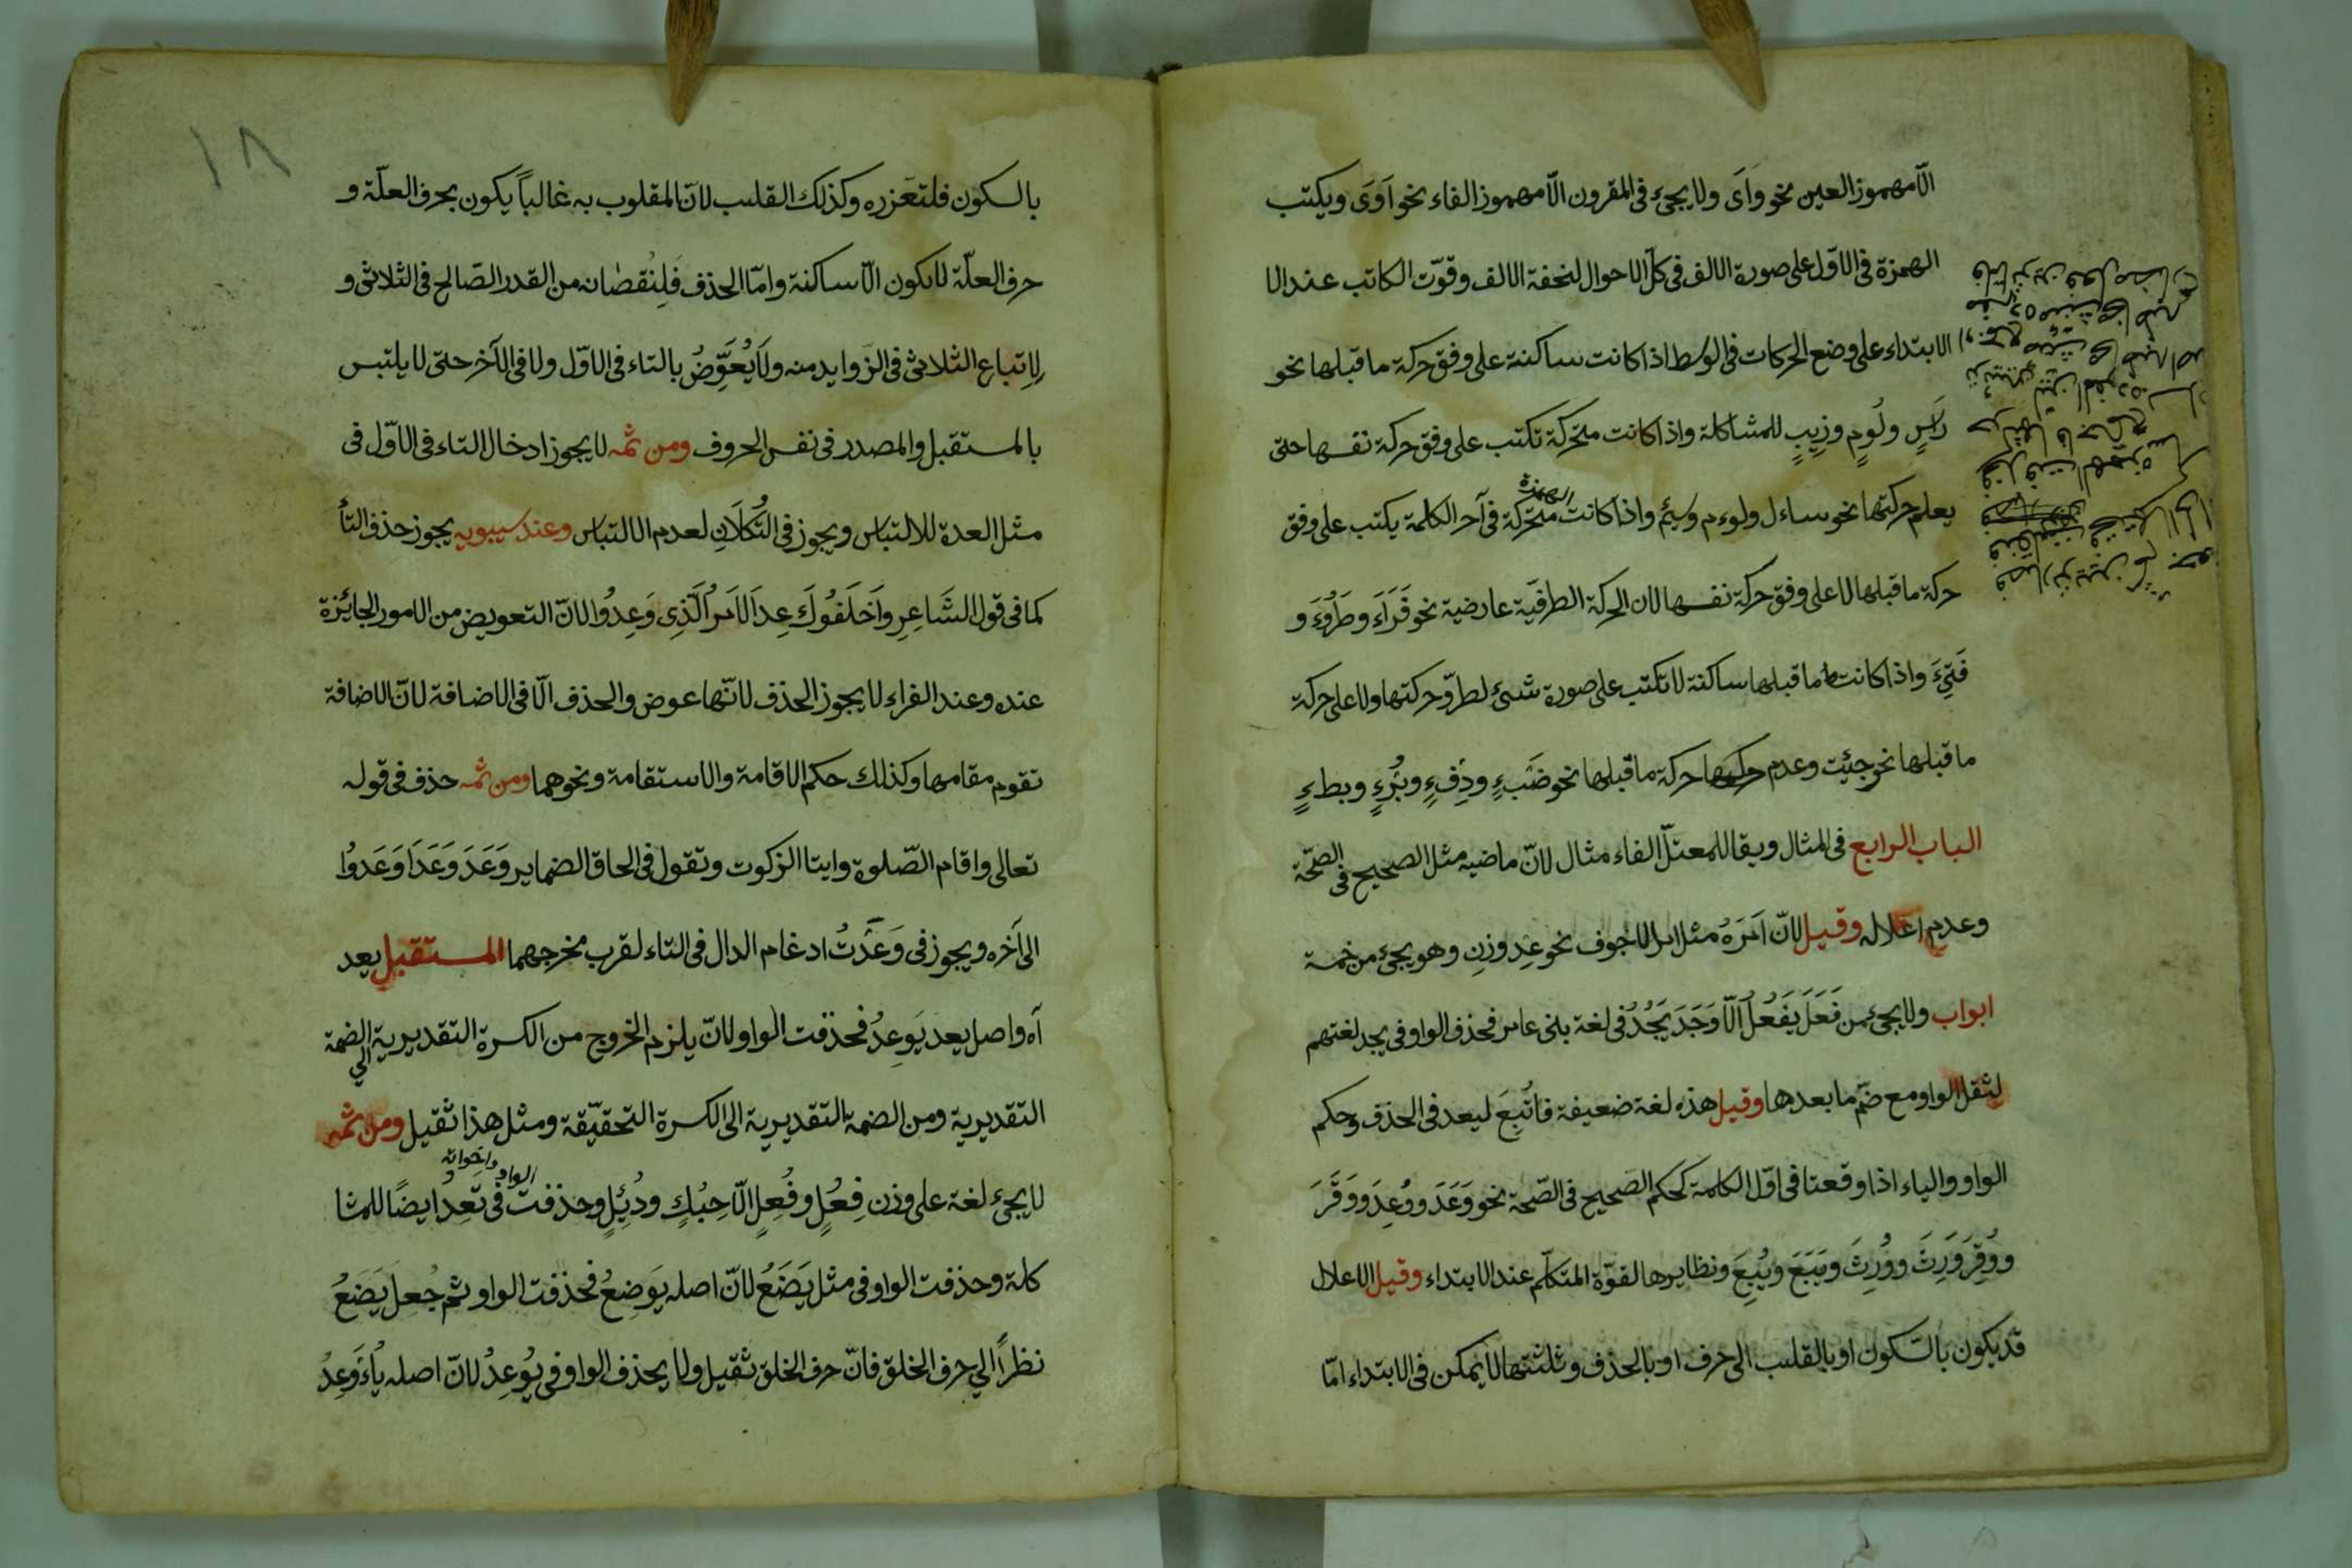 الّا مهموز العين نحو وَاَى ولا يجىء فى المقرون الّا مهموز الفاء نحو اَوَى ويكتب
الهمزة فى الاوّل على صورة الالف فى كلّ الاحوال لخفة الالف وقوّت الكاتب عند الا
الابتداء على وضع الحركات فى الوسط اذا كانت ساكنة على وفق حركة ما قبلها نحو
رَاسٍ ولُومٍ وزِيبٍ للمشاكلة واذا كانت متحرّكة تكتب على وفق حركة نفسها حتى
يعلم حركتها نحو ساءل ولوءم وسئِم واذا كانت الهمزة متحرّكة فى آخر الكلمة يكتب على وفق
حركة ما قبلها لا على وفق حركة نفسها لان الحركة الطرفيّة عارضية نحو قَرَاَءَ وطَرُوَءَ و
فَتِىءَ واذا كانت ما قبلها ساكنة لا تكتب على صورة شىء لطروّ حركتها ولا على حركة
ما قبلها نحو جئِت وعدم حركتها حركة ما قبلها نحو خَبءٍ ودِفءٍ وبُرءٍ وبطءٍ
الباب الرابع فى المثال ويقا للمعتلّ الفاء مثال لانّ ماضيه مثل الصحيح فى الصحّة
وعدم اعلاله وقيل لانّ اَمرَهُ مثل امر الاجوف نحو عِد وزِن وهو يجىء من خمسة
ابواب ولا يجىء من فَعَلَ يَفعُلُ الّا وَجَدَ يَجُدُ فى لغة بنى عامر فحذف الواو فى يجد لغتهم
لثقل الواو مع ضمّ ما بعدها وقيل هذه لغة ضعيفة فاُتبِعَ ليعد فى الحذف وحكم
الواو والياء اذا وقعتا فى اوّل الكلمة كحكم الصحيح فى الصّحة نحو وَعَدَ ووُعِدَ ووَقَّرَ
ووُقِّرَ وَرِثَ ووُرِثَ ويَنَعَ ويُنِعَ ونظايرها لقوّة المتكلّم عند الابتداء وقيل الاعلال
قد يكون بالسّكون او بالقلب الى حرف او بالحذف وثلثتها لا يمكن فى الابتداء امّا
١٨
بالسكون فلتعَزره وكذلك القلب لانّ المقلوب به غالباً يكون بحرف العلّة و
حرف العلّة لا يكون الّا ساكنة وامّا الحذف فَلِنُقصَانه من القدر الصّالح فى الثلاثى و
لِاِتباع الثلاثى فى الزّوايد منه ولَا يُعَوَّضُ بالتاء فى الاوّل ولا فى الآخر حتّى لا يلتبس
بالمستقبل والمصدر فى نفس الحروف ومن ثمه لا يجوز ادخال التاء فى الاوّل فى
مثل العدة للالتباس ويجوز فى التُّكلَانِ لعدم الالتباس وعند سيبويه يجوز حذف التأ
كما فى قول الشَاعِرِ واَخلَفُوكَ عِدَ الاَمرُ الَّذِى وَعِدُوا لانّ التعويض من الامور الجائزة
عنده وعند الفراء لا يجوز الحذف لانّها عوض والحذف الّا فى الاضافة لانّ الاضافة
تقوم مقامها وكذلك حكم الاقامة والاستقامة ونحوهما ومن ثمه حذف فى قوله
تعالى واقام الصّلوة وايتا الزكوت وتقول فى الحاق الضماير وَعَدَ وَعَدَا وَعَدُوا
الى آخره ويجوز فى وَعَدتُ ادغام الدال فى التاء لقرب مخرجهما المستقبل يعد
آه واصل يعد يَوعِدُ فحذفت الواو لانّ يلزم الخروج من الكسرة التقديرية الى الضمة
التقديرية ومن الضمة التقديرية الى الكسرة التحقيقة ومثل هذا ثقيل ومن ثمه
لا يجىء لغة على وزن فِعُلٍ وفُعِلٍ الّا حِبُكٍ ودُئِلٍ وحذفت الواو فى تَعِدُ واخواته ايضًا للمشا
كلة وحذفت الواو فى مثل يَضَعُ لانّ اصله يَوضِعُ فحذفت الواو ثم جُعِلَ يَضَعُ
نظراً الي حرف الحلق فانّ حرف الحلق ثقيل ولا يحذف الواو فى يُوعِدُ لانّ اصله يُاَءوعِدُ